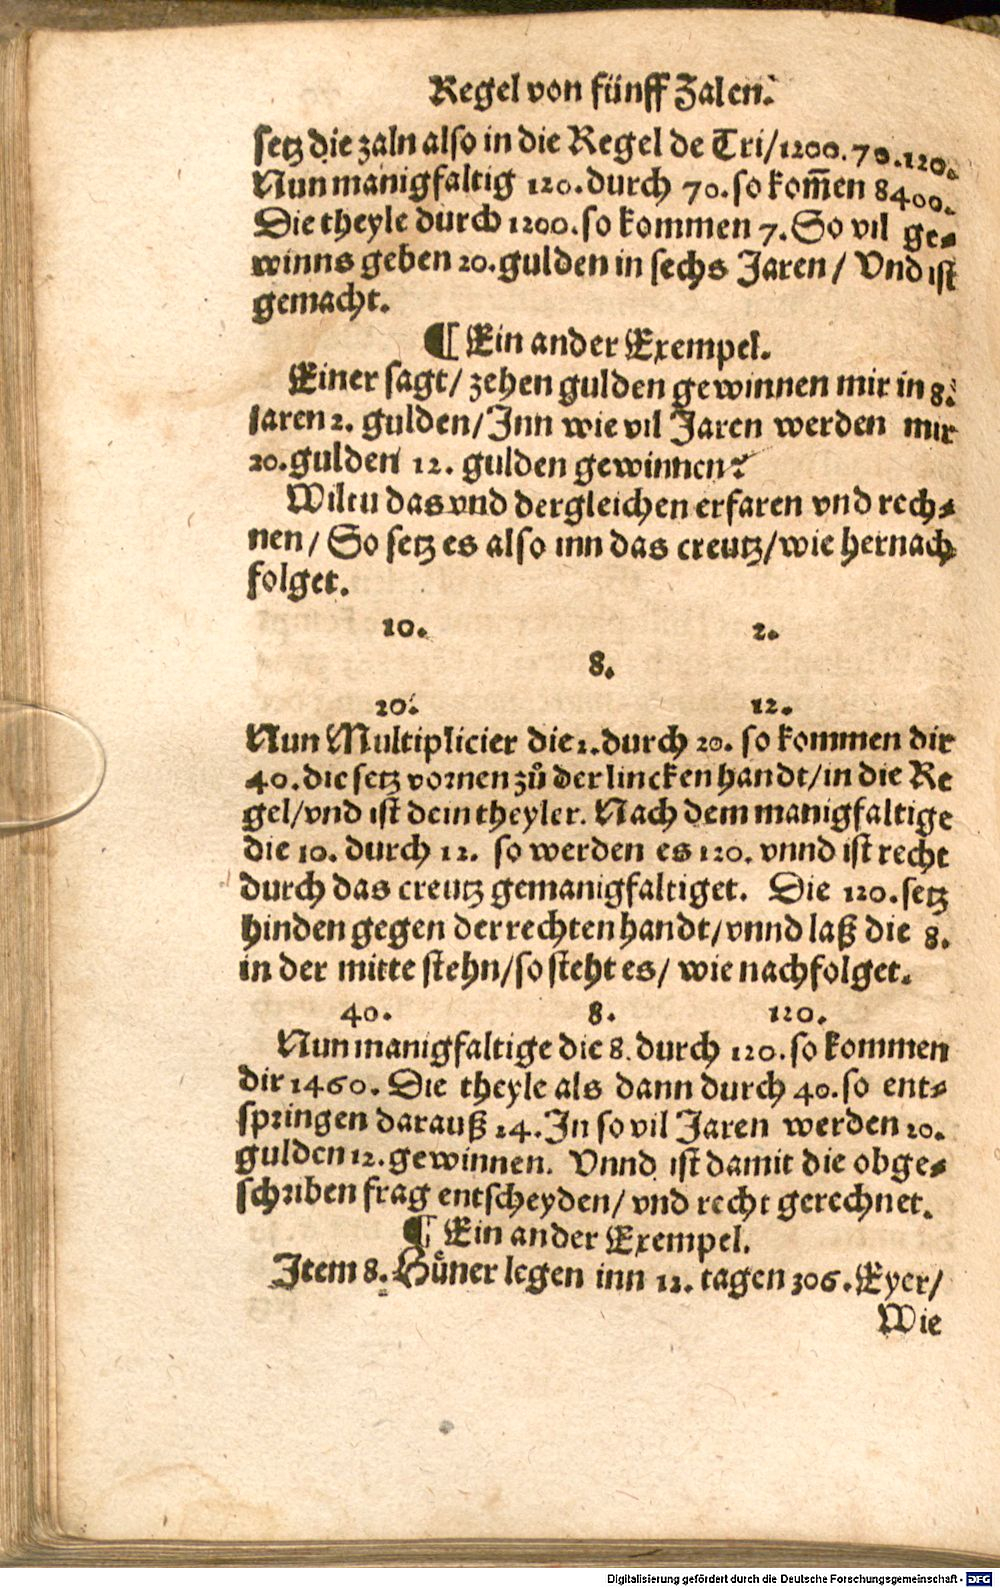 Regel von fünff Zalen.
setz die zaln also in die Regel de Tri/1200.70.120.
Nun manigfaltig 120.durch 70.so kom̃en 8400.
Die theyle durch 1200.so kommen 7.So vil ge-
winns geben 20.gulden in sechs Jaren/ Vnd ist
gemacht.
¶ Ein ander Exempel.
Einer sagt/ zehen gulden gewinnen mir in 8.
jaren 2. gulden/Inn wie vil Jaren werden mir
20.gulden 12. gulden gewinnen?
Wiltu das vnd dergleichen erfaren vnd rech-
nen/ So setz es also inn das creutz/wie hernach
folget.
10. 2.
8.
20. 12.
Nun Multiplicier die 2.durch 20. so kommen dir
40.die setz vornen zů der lincken handt/in die Re
gel/vnd ist dein theyler. Nach dem manigfaltige
die 10. durch 12. so werden es 120. vnnd ist recht
durch das creutz gemanigfaltiget. Die 120.setz
hinden gegen der rechten handt/vnnd laß die 8.
in der mitte stehn/so steht es/ wie nachfolget.
40. 8. 120.
Nun manigfaltige die 8.durch 120.so kommen
dir 1460. Die theyle als dann durch 40.so ent-
springen darauß 24.In so vil Jaren werden 20.
gulden 12.gewinnen. Vnnd ist damit die obge-
schriben frag entscheyden/ vnd recht gerechnet.
¶ Ein ander Exempel.
Item 8.Hüner legen inn 12. tagen 306.Eyer/
Wie
Digitalisierung gefördert durch die Deutsche Forschungsgemeinschaft - DFG